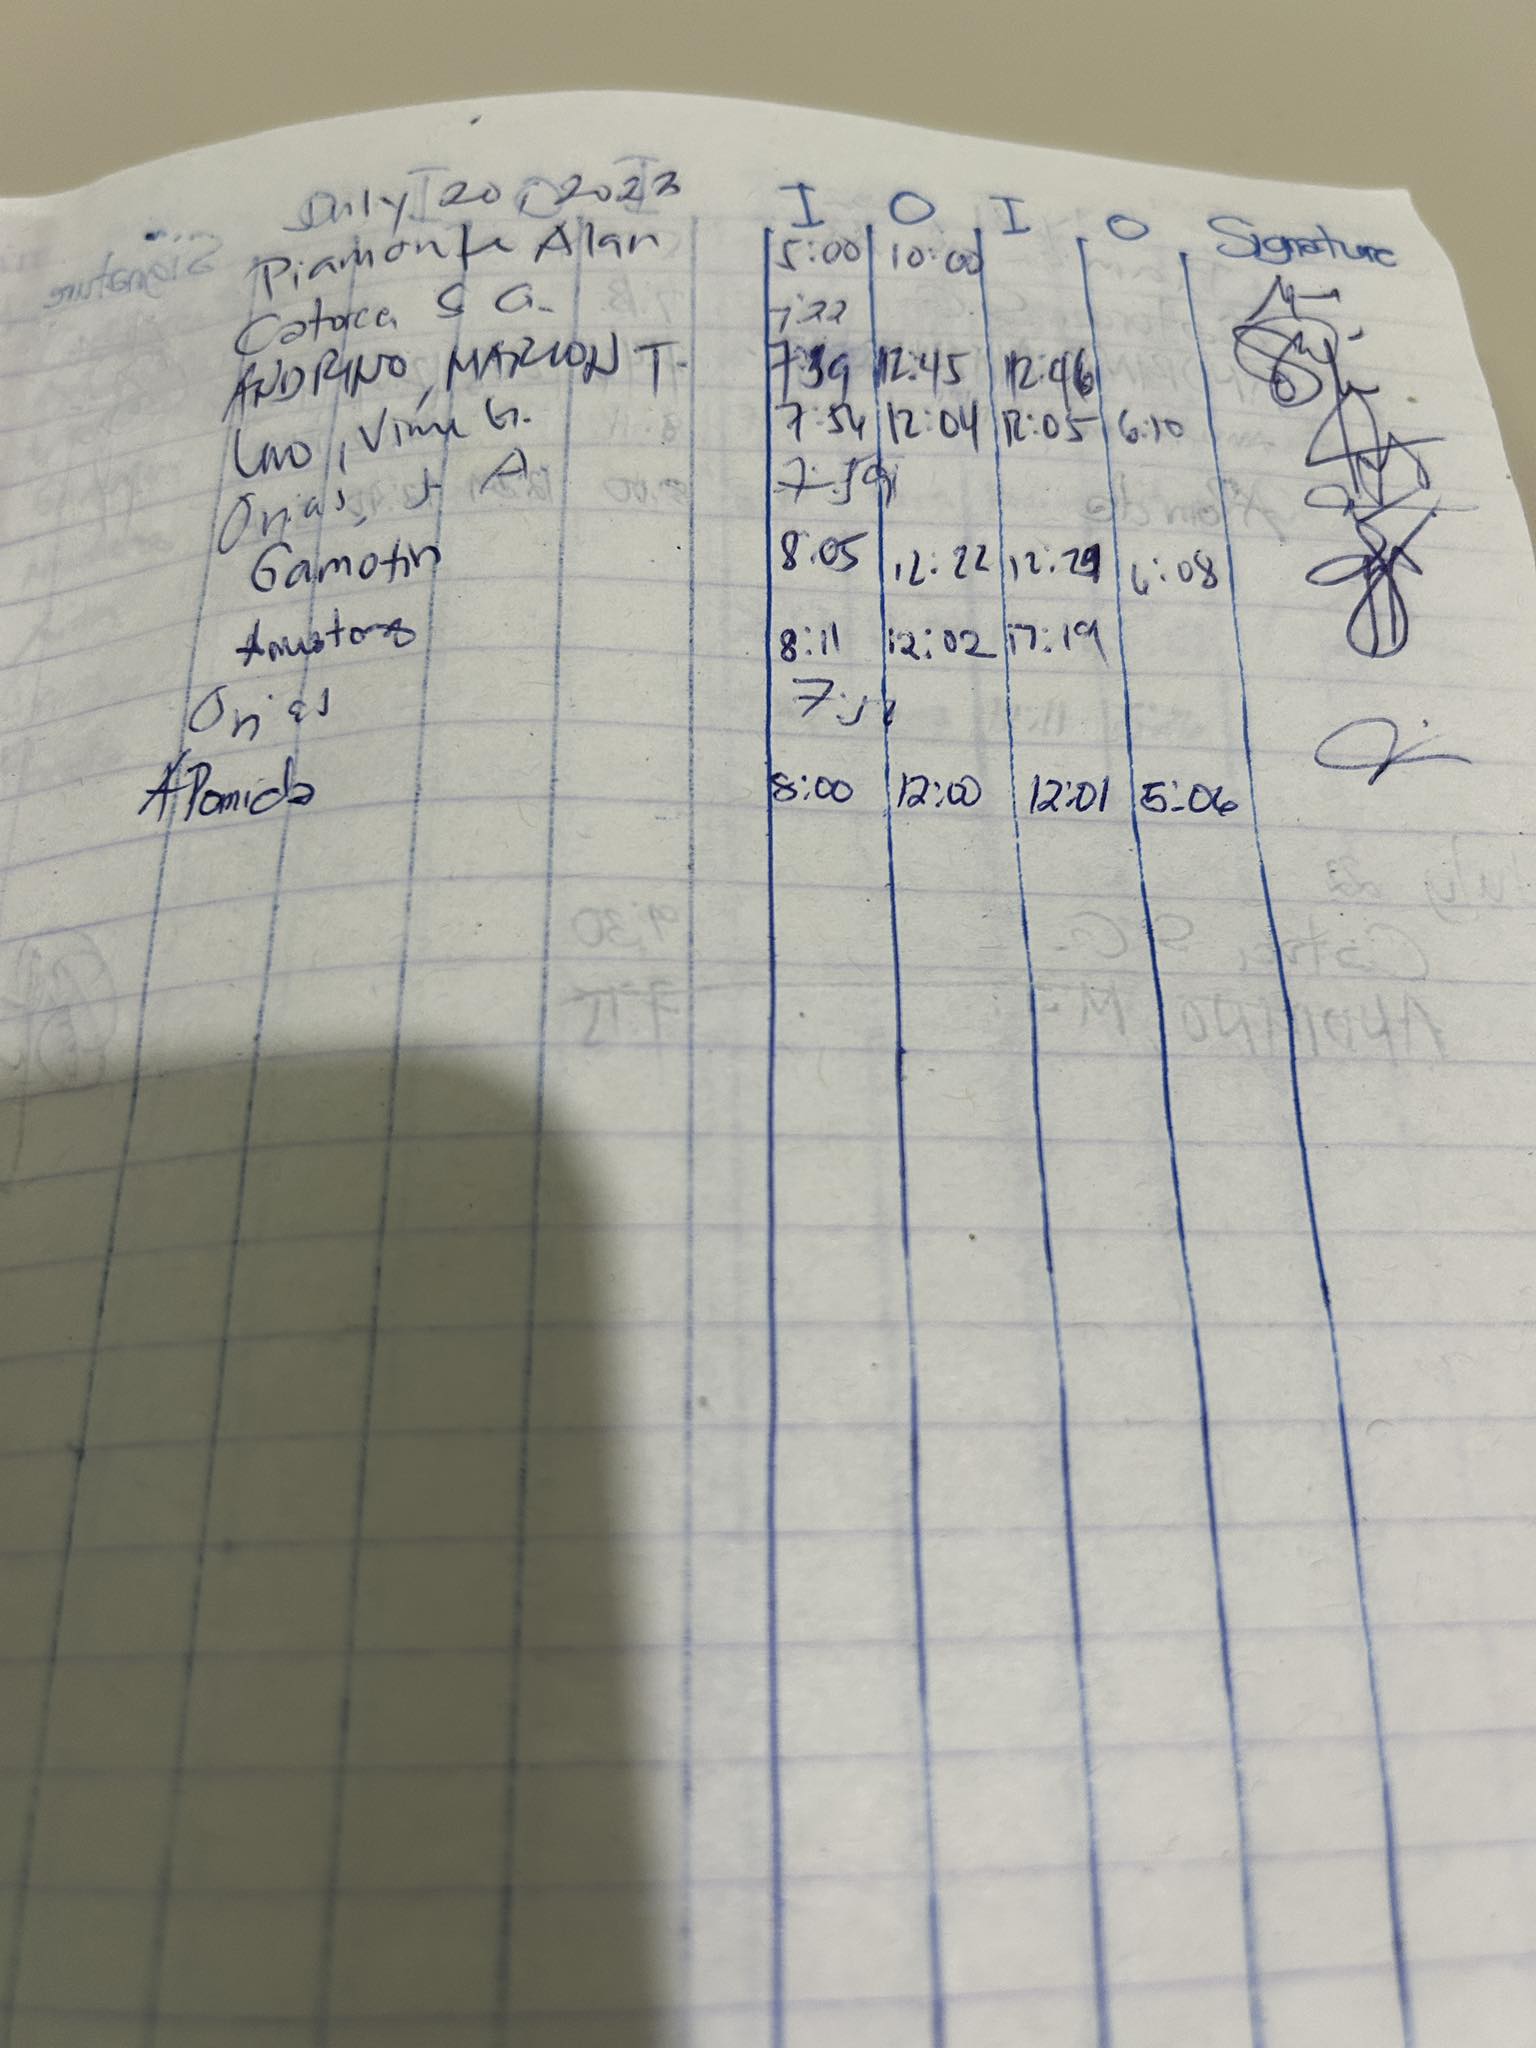 July 20, 2023 I O I O Signature
Piamonte Alan 5:00 10:00
Catorce S G. 7:22
ANDRINO, MARLON T. 7:39 12:45 12:46
G. 7:54 12:04 12:05 6:10
Orias, J A 7:59
Gamotin 8:05 12:22 12:29 6:08
8:11 12:02 17:19
Orias
8:00 12:00 12:01 5:06